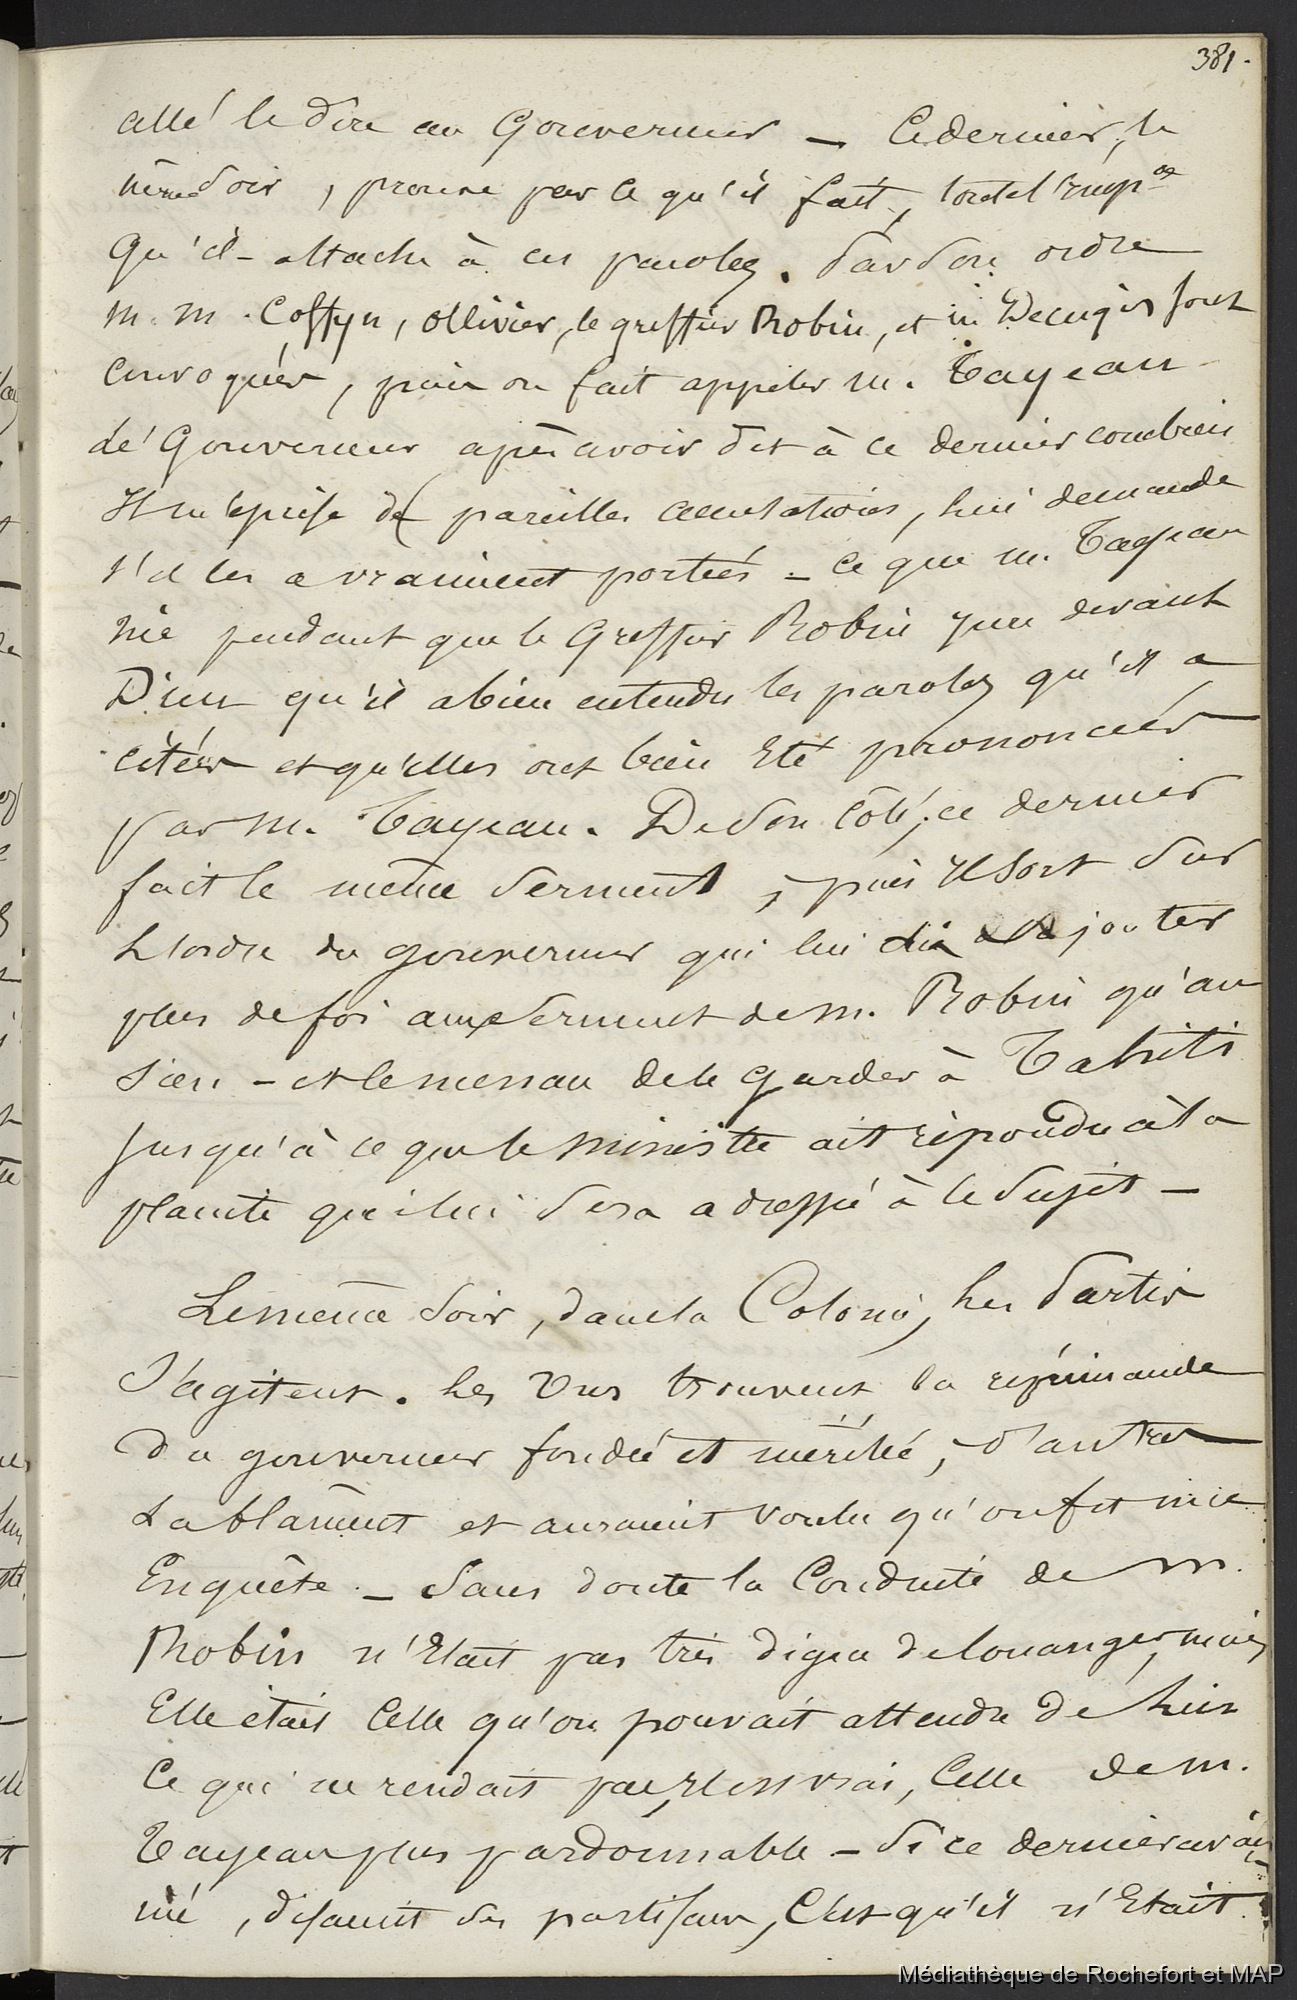 381.
allé le dire au Gouverneur — Ce dernier, le
même soir, prouve par ce qu'il fait, toute l'imp.ce
qu'il attache à ces paroles. Par son ordre
M. M. Coffyn, Ollivier, le greffier Robin, et M. Decugis sont
convoqués, puis on fait appeler M. Tayeau
le Gouverneur après avoir dit à ce dernier combien
Il méprise de pareilles accusations, lui demande
s'il les a vraiment portées — ce que M. Tayeau
nie pendant que le Greffier Robin jure devant
Dieu qu'il a bien entendu les paroles qu'il a
citées et qu'elles ont bien Eté prononcées
par M. Tayeau. De son côté, ce dernier
fait le même serment, puis Il sort sur
L'ordre du gouverneur qui lui dit ajouter
plus de foi aux serment de M. Robin qu'au
sien — et le menace de le garder à Tahiti
Jusqu'à ce que le ministre ait répondu à la
plainte qui lui sera adressée à ce sujet —
Le même soir, dans la Colonie, les Partis
S'agitent. Les Uns trouvent la réprimande
du gouverneur fondée et méritée, d'autres
La blâment et auraient voulu qu'on fit une
Enquête. — Sans doute la Conduite de M.
Robin n'Etait pas très digne de louanges, mais
Elle était Celle qu'on pouvait attendre de Lui
Ce qui ne rendait pas, Il est vrai, Celle de M.
Tayeau plus pardonnable — Si ce dernier avait
nié, disaient ses partisans, C'est qu'il n'Etait
Médiathèque de Rochefort et MAP